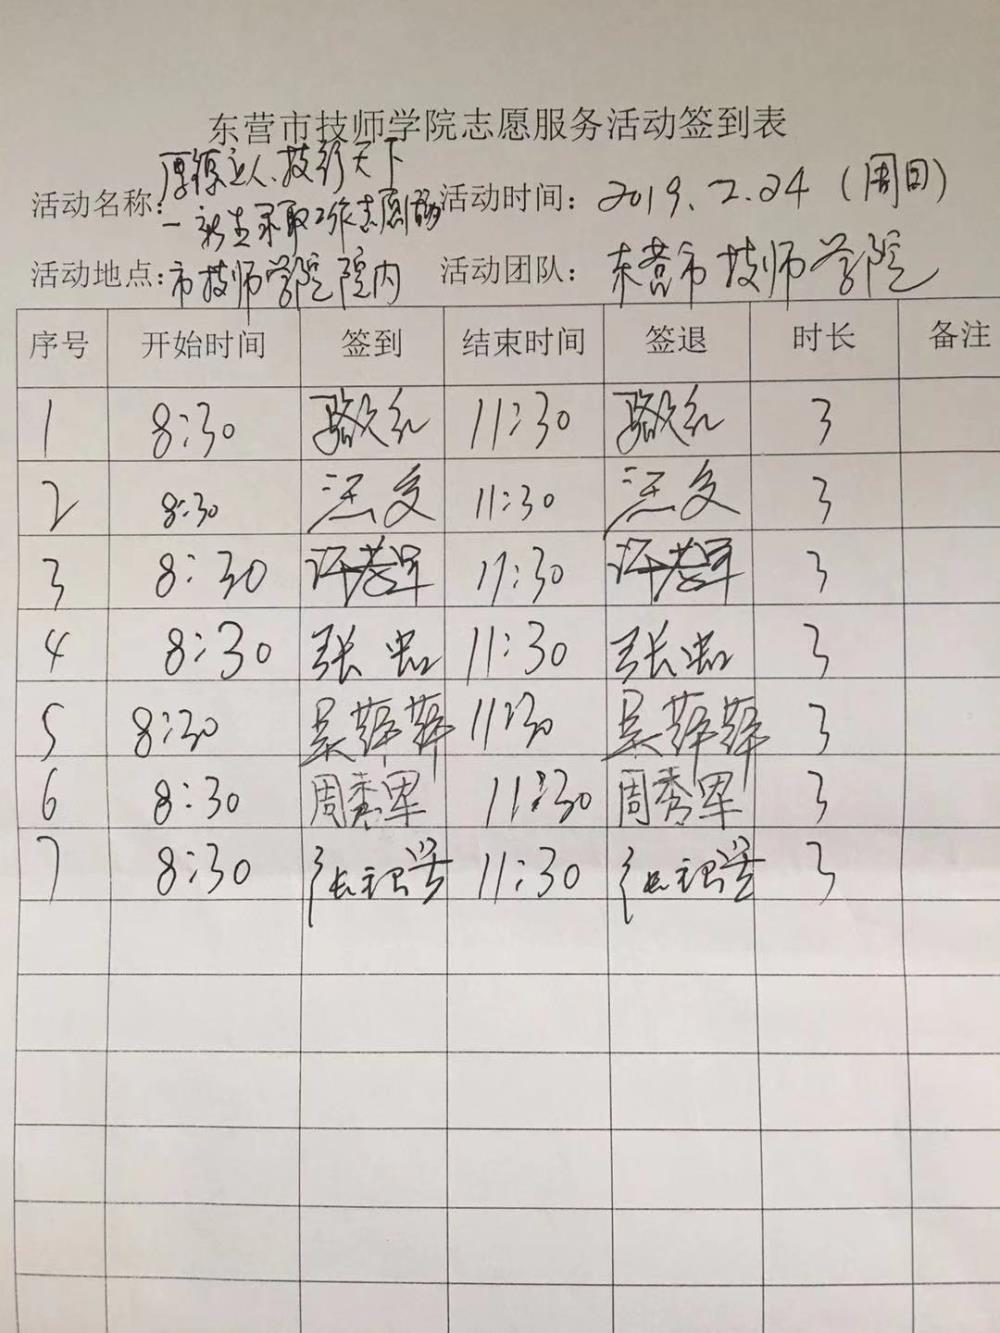 东营市技师学院志愿服务活动签到表
活动名称: 厚德立人、技行天下 活动时间: 2019.2.24 (周日)
一新生录取工作志愿活动
活动地点: 市技师学院院内 活动团队: 东营市技师学院
序号 开始时间 签到 结束时间 签退 时长 备注
1 8:30 11:30 3
2 8:30 11:30 3
3 8:30 11:30 3
4 8:30 张虹 11:30 张虹 3
5 8:30 吴萍萍 11:30 吴萍萍 3
6 8:30 周秀军 11:30 周秀军 3
7 8:30 11:30 3